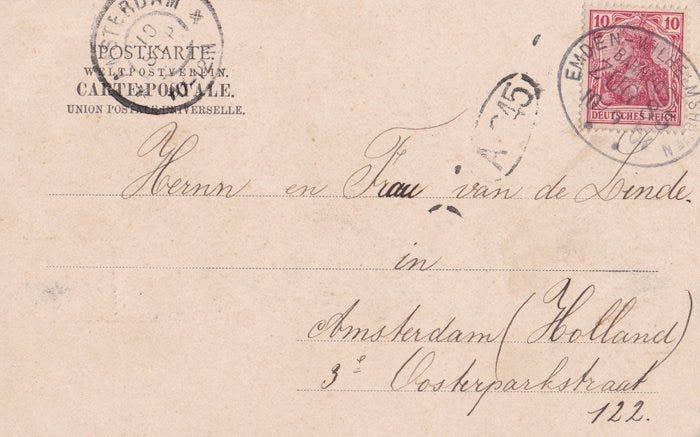 AMSTERDAM
POSTKARTE.
WELTPOSTVEREIN.
CARTE POSTALE.
UNION POSTALE UNIVERSELLE.
10 10
DEUTSCHES REICH
EMDEN
A 245
Herrn en Frau van de Linde.
in
Amsterdam (Holland)
3e Oosterparkstraat
122.